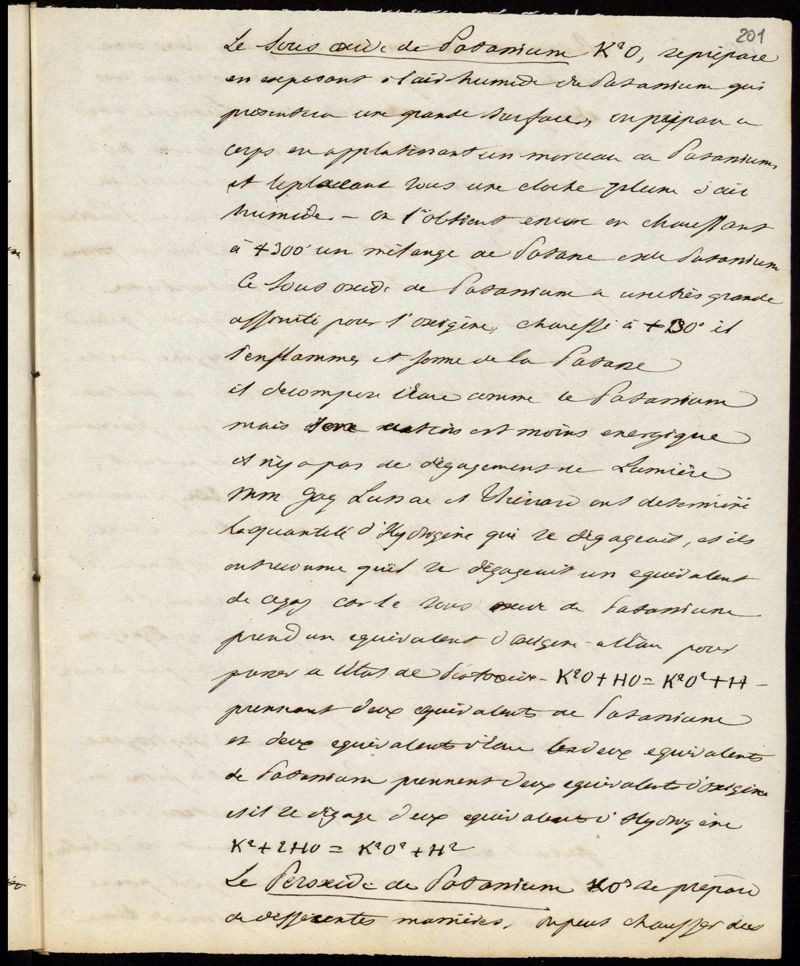 201
Le sous oxide de Potassium K²O, se prépare
en exposant à l'air humide du Potassium qui
présentera une grande surface, on prépare ce
corps en applatissant un morceau de Potassium,
et le plaçant sous une cloche pleine d'air
humide. — on l'obtient encore en chauffant
à +300° un mélange de Potasse et de Potassium
Ce sous oxide de Potassium a une très grande
affinité pour l'oxigène, chauffé à +30° il
s'enflamme, et forme de la Potasse
il décompose l'eau comme le Potassium
mais action est moins energique
et n'y a pas de dégagement de Lumière
MM Gay Lussac et Thénard ont determiné
la quantité d'Hydrogène qui se dégageait, et ils
ont reconnu qu'il se dégageait un equivalent
de ce gaz car le sous oxide de Potassium
prend un equivalent d'oxigène à l'eau pour
passer à l'état de Protoxide — K²O + HO = K²O² + H —
prennant deux equivalents de Potassium
et deux equivalents d'eau les deux equivalents
de Potassium prennent deux equivalents d'oxigène
et il se dégage deux equivalents d'Hydrogène
K² + 2HO = K²O² + H²
Le Peroxide de Potassium KO³ se prépare
de différentes manières, on peut chauffer des